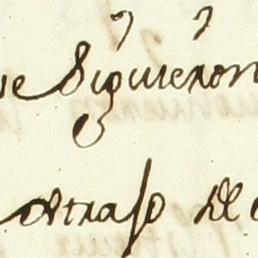 ve Siguieron
otra so de